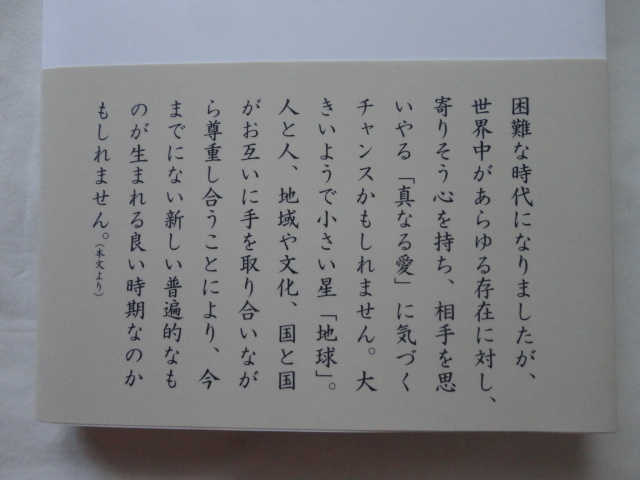 困難な時代になりましたが、
世界中があらゆる存在に対し、
寄りそう心を持ち、相手を思
いやる「真なる愛」に気づく
チャンスかもしれません。大
きいようで小さい星「地球」。
人と人、地域や文化、国と国
がお互いに手を取り合いなが
ら尊重し合うことにより、今
までにない新しい普遍的なも
のが生まれる良い時期なのか
もしれません。（本文より）